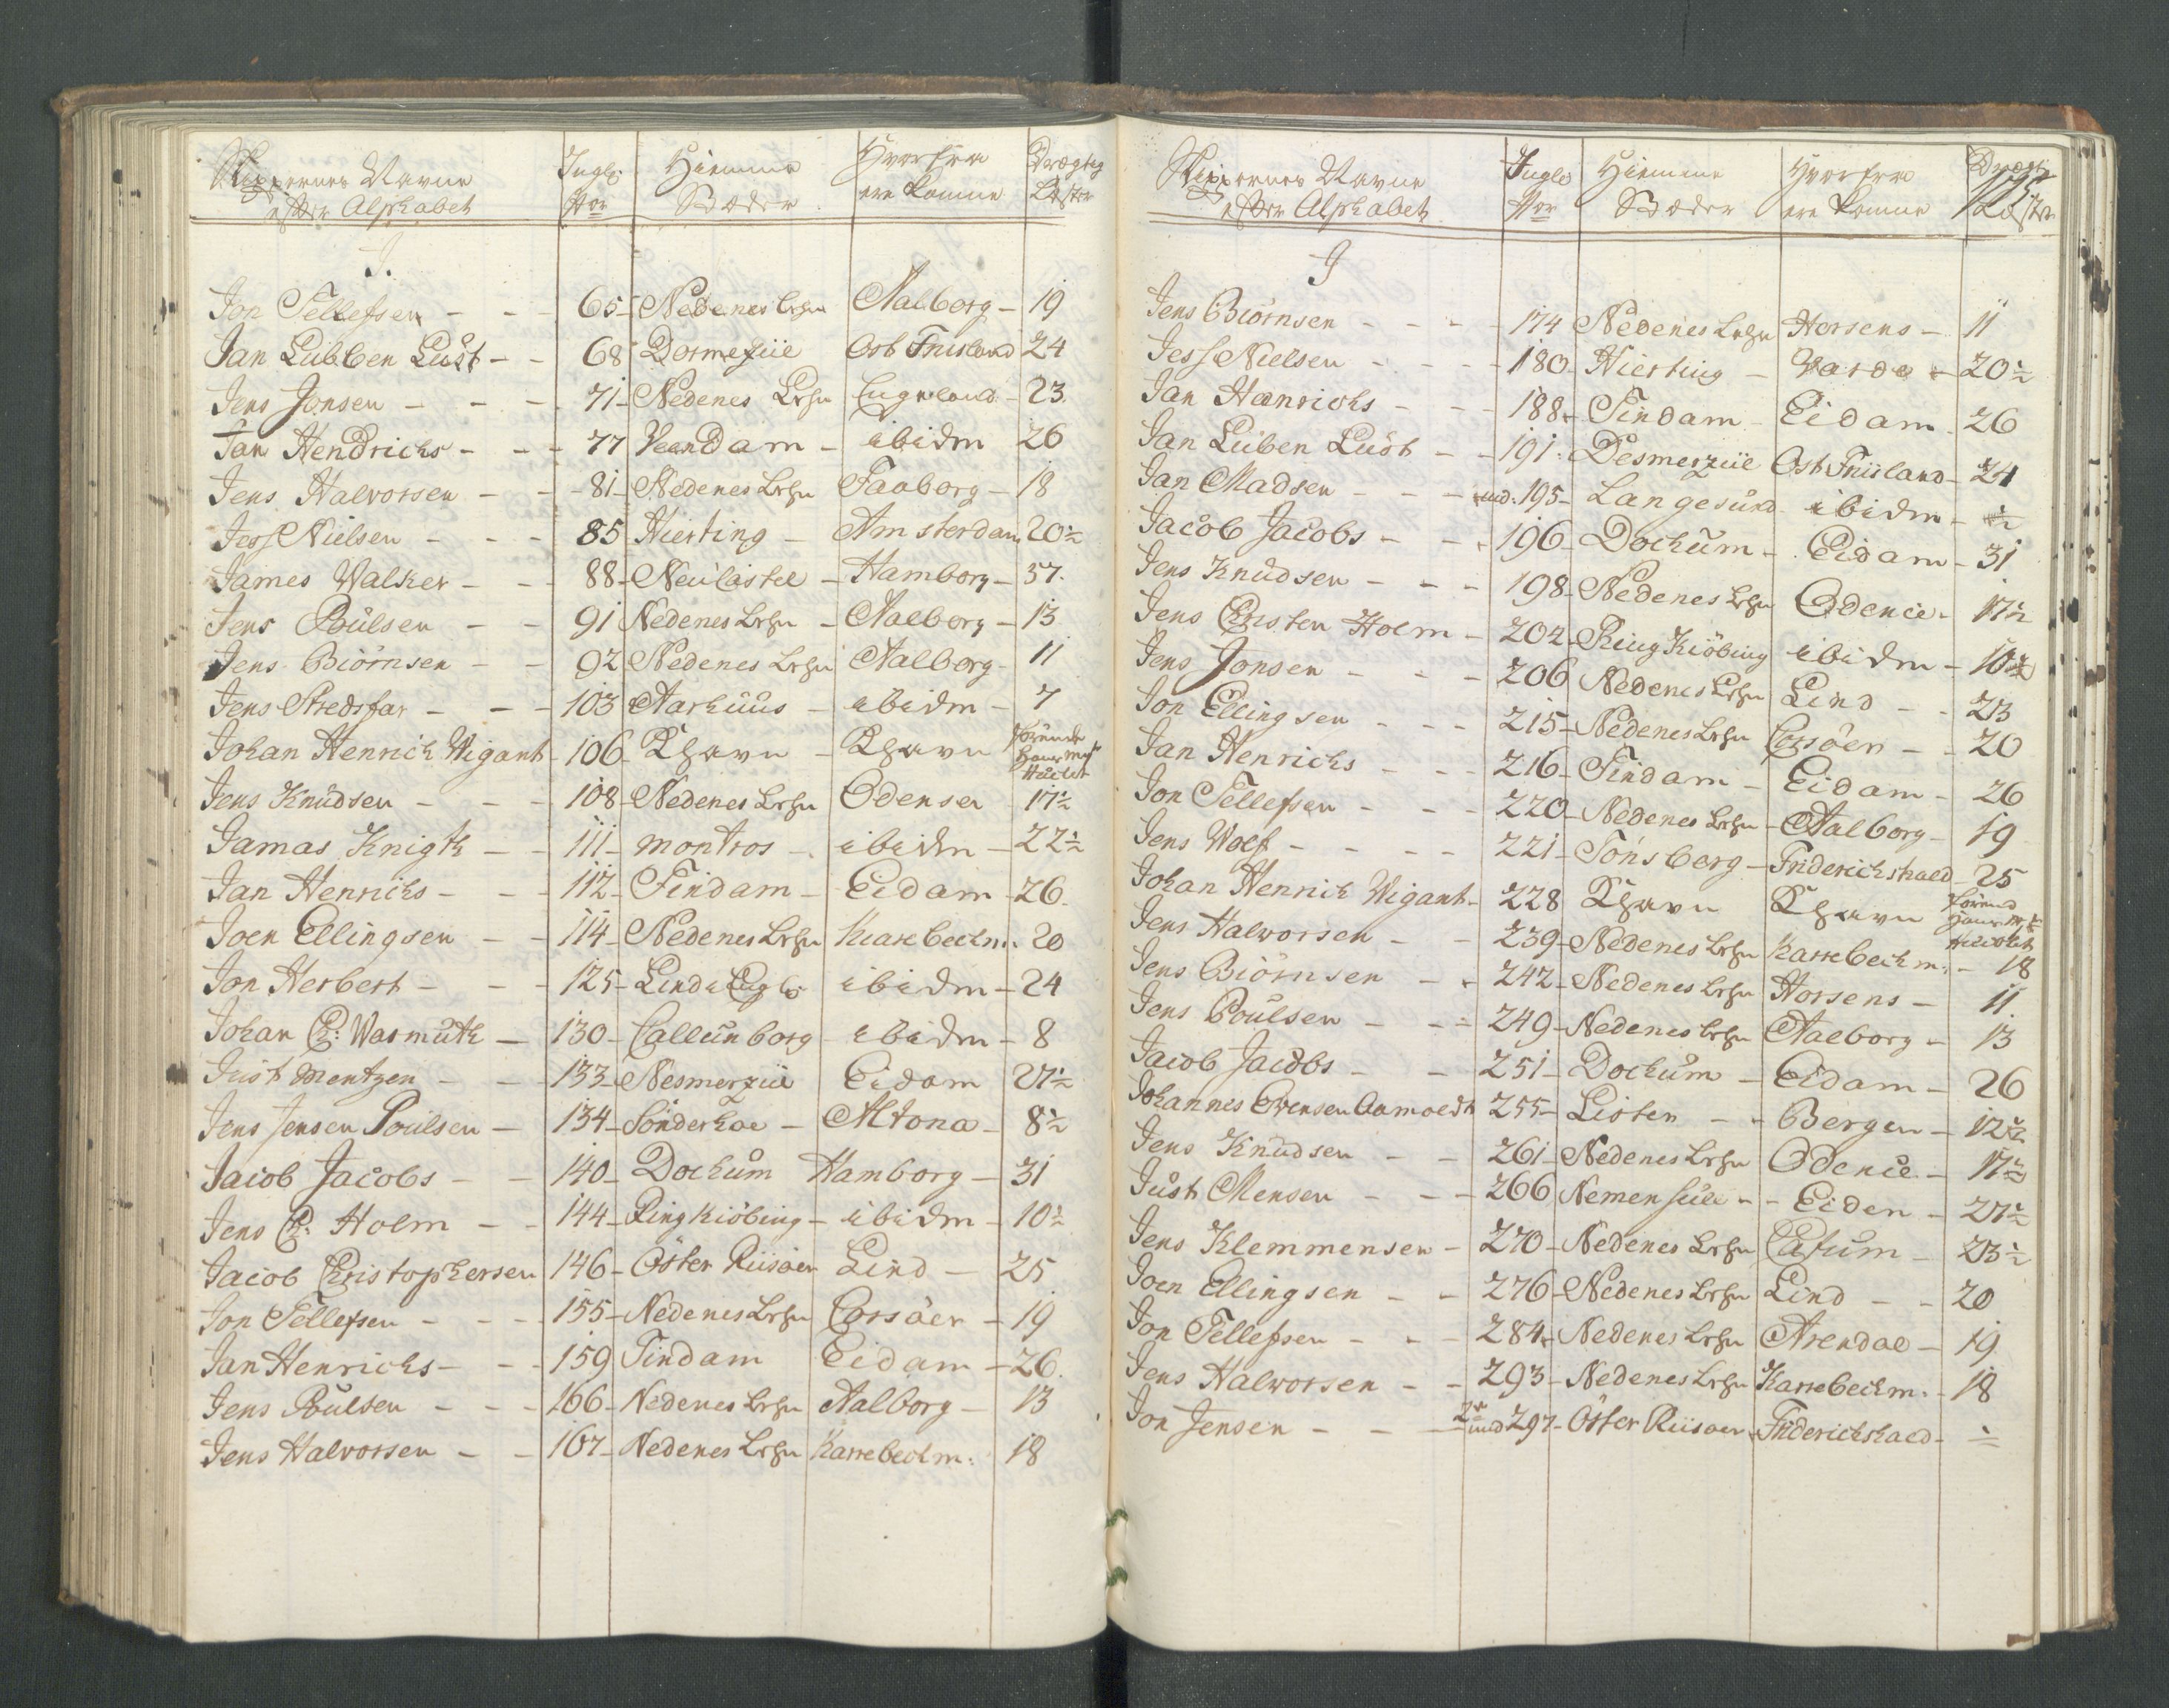 Skippernes Navne efter Alphabet | Ingb. Nor | Hiemme Stæder | Hvorfra ere komne | Drægtig Læster
J.
Jon Tellefsen - - 65 - Nedenes Lehn Aalborg - 19
Jan Lübben Lüst - - 68 Dosmezüil Ost Friisland 24
Jens Jonsen - - - 71 - Nedenes Lehn Engeland - 23.
Jan Hendrichs - - - 77 Veendam - ibidm 26
Jens Halvorsen - - 81 - Nedenes Lehn Faaborg - 18
Jess Nielsen - - - 85 Hierting - Amsterdam 20½
James Walker - - 88 - Neúcastel - Hamborg - 37.
Jens Poülsen - - 91 Nedenes Lehn - Aalborg - 13
Jens Biörnsen - - 92 Nedenes Lehn Aalborg - 11
Jens Stedsfar - - - 103 Aarhüüs - ibidm - 7
Johan Henrich Wigant - 106 - Khavn - Khavn förende Hans May Huckert
Jens Knüdsen - - - 108 - Nedenes Lehn Odensee 17½
Jamas Knigth - - 111 - montros - ibidm - 22½
Jan Henrichs - - - 112 - Tindam - Eidam - 26.
Joen Ellingsen - - 114 - Nedenes Lehn Karrebechm: 20
Jon Herbert - - - 125 - Lind i Engl: ibidm - 24
Johan C: Warmüth - 130 - Callünborg - ibidm - 8
Jüst Mentzen - - 133 - Nesmerzüil Eidam 27½
Jens Jensen Poülsen - 134 - Sönderhoe - Altona - 8½
Jacob Jacobs - - 140 - Dochüm Hamborg - 31
Jens C: Holm - - 144 - Ringkiöbing - ibidm - 10½
Jacob Christophersen 146 - Öster Riisöer Lind - 25
Jon Tellefsen - - - 155 - Nedenes Lehn Corsöer - 19
Jan Henrichs - - - 159 Tindam Eidam - 26.
Jens Poülsen - - - 166 - Nedenes Lehn Aalborg - 13
Jens Halvorsen - - 167 - Nedenes Lehn Karrebechm: 18
Skippernes Navne efter Alphabet | Ingb Nor | Hiemme Stæder | Hvorfra ere komne | Drægtig Læster
175
J
Jens Biörnsen - - - 174 Nedenes Lehn Horsens - 11
Jess Nielsen - - - 180 - Hierting - Varde - 20½
Jan Henrichs - - - 188 - Tindam - Eidam - 26
Jan Lüben Lüst - - 191 - Desmerzüil Ost Friisland - 24
Jan Madsen - - - ind: 195 - Langesünd - ibidm - ÷
Jacob Jacobs - - - 196 - Dochüm - Eidam - 31
Jens Knüdsen - - - 198 - Nedenes Lehn Odence - 17½
Jens Christen Holm - 202 - Ringkiöbing ibidm - 10½
Jens Jonsen - - - 206 Nedenes Lehn Lind - - 23
Jon Ellingsen - - - 215 - Nedenes Lehn Corsöer - - 20
Jan Henrichs - - - 216 - Tindam - Eidam - 26
Jon Tellefsen - - - 220 - Nedenes Lehn - Aalborg - 19
Jens Wolf - - - - 221 - Tönsberg - Friderichshald - 25
Johan Henrich Wigant - 228 Khavn Khavn förend Hans May Huckert
Jens Halvorsen - - 239 - Nedenes Lehn Karrebechm: - 18
Jens Biörnsen - - 242 - Nedenes Lehn Horsens - 11.
Jens Poülsen - - - 249 - Nedenes Lehn Aalborg - 13
Jacob Jacobs - - 251 - Dochüm - Eidam - 26
Johannes Evensen Aamoldt 255 - Lister - - Bergen - 12½
Jens Knüdsen - - 261 - Nedenes Lehn Odence - 17½
Jüst Mensen - - - 266 Nemensüil - - Eiden - 27½
Jens Klemmensen - 270 - Nedenes Lehn Catüm - 23½
Joen Ellingsen - - 276 - Nedenes Lehn Lind - - 20
Jon Tellefsen - - - 284 - Nedenes Lehn Arendal - 19
Jens Halvorsen - - 293 - Nedenes Lehn Karrebechm: - 18
Jon Jensen - - - ind 297 - Öster Riisoer - Friderichshald - ÷